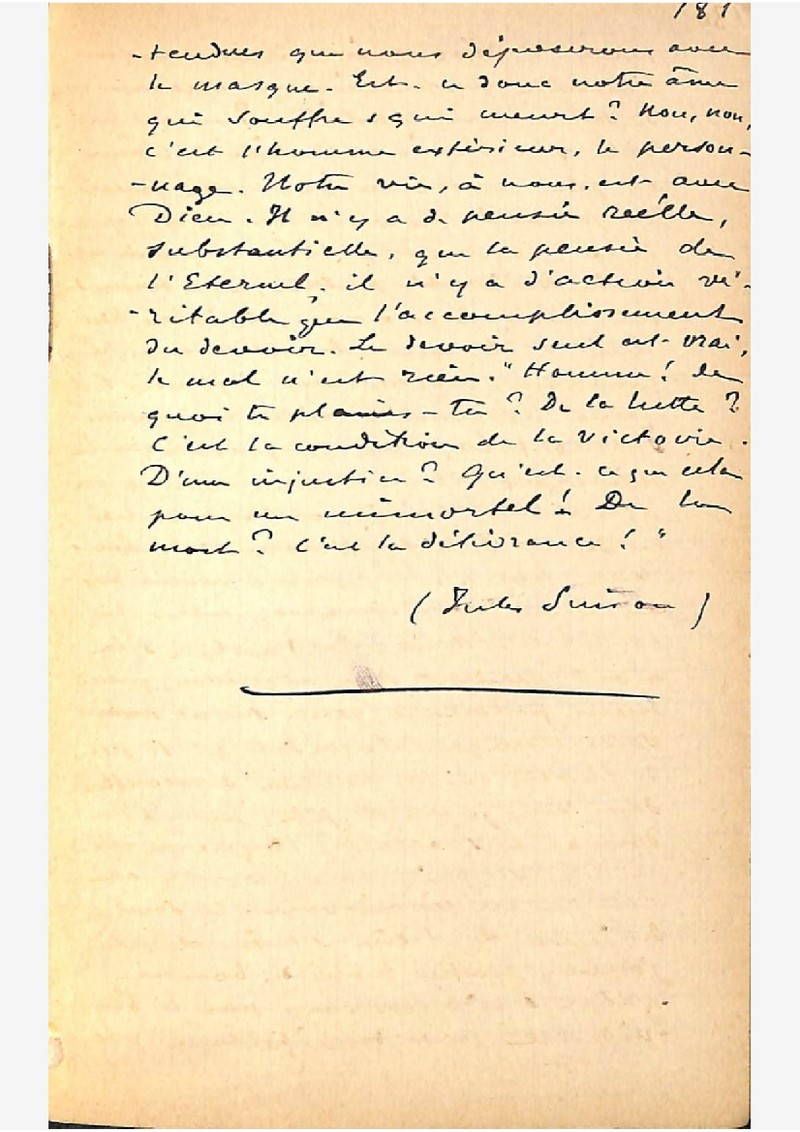 181
-tendues que nous déposerons avec
le masque. Est-ce donc notre âme
qui souffre & qui meurt? Non, non,
c'est l'homme extérieur, le person-
-nage. Notre vie, à nous, est avec
Dieu. Il n'y a de pensée réelle,
substantielle, que la pensée de
l'Eternel; il n'y a d'action vé-
-ritable que l'accomplissement
du devoir. Le devoir seul est vrai,
le mal n'est rien. "Homme! de
quoi te plains-tu? De la lutte?
C'est la condition de la victoire.
D'une injustice? Qu'est-ce que cela
pour un immortel! De la
mort? C'est la délivrance!"
(Jules Simon)